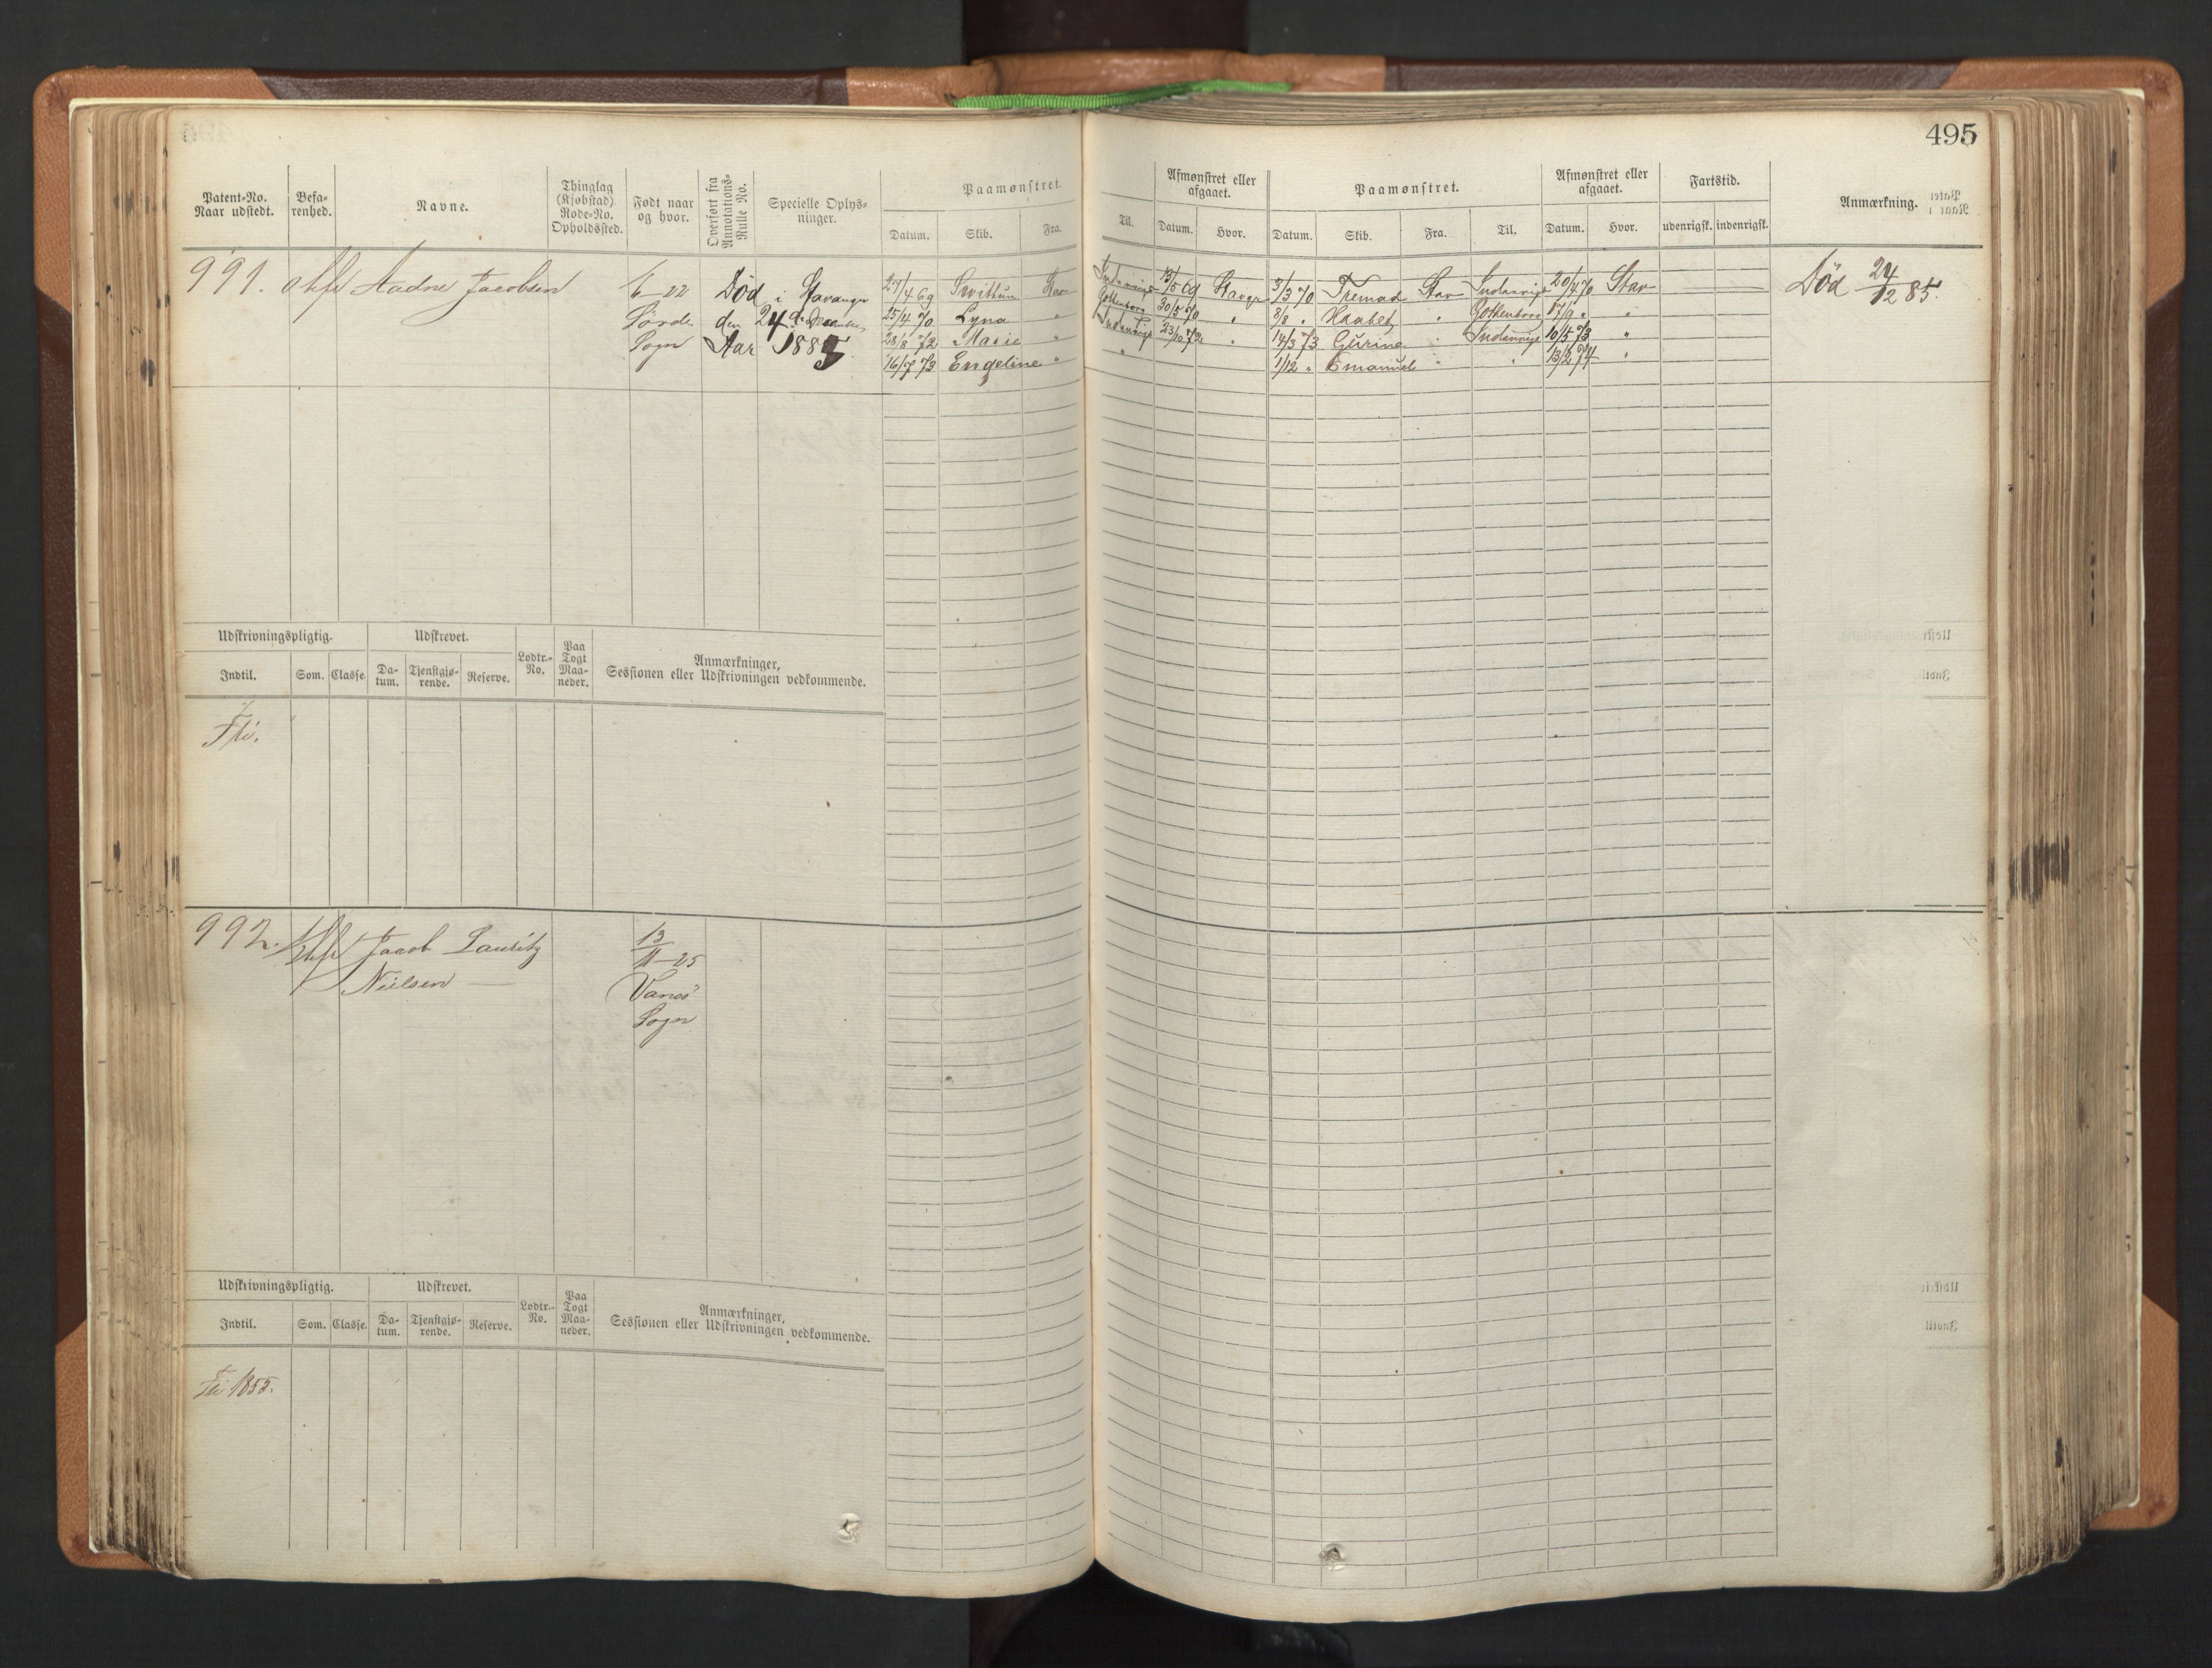 495
Patent-No.
Naar udstedt.
Befa-
renhed.
Navne.
Thinglag
(Kjøbstad)
Rode-No.
Opholdssted.
Født naar
og hvor.
Overført fra
Annotations-
Rulle No.
Specielle Oplys-
ninger.
Paamønstret.
Datum.
Skib.
Fra.
Til.
Afmønstret eller
afgaaet.
Datum.
Hvor.
Paamønstret.
Datum.
Skib.
Fra.
Til.
Afmønstret eller
afgaaet.
Datum.
Hvor.
Fartstid.
udenrigsk.
indenrigsk.
Anmærkning.
991.
Aadne Jacobsen
6-22
Sogn
Død i Stavanger
den 24de December
Aar 1885
27/4 69 Swithun Stav
13/5 69 Stavgr
3/3 70 Fremad Stav
20/4 70 Stav
25/4 70 Lyna "
Gothenborg 30/5 70 "
8/8 " Haabet " Gothenborg 17/9 " "
28/8 72 Marie "
23/10 72 "
14/3 73 Gurine " 10/5 73 "
16/7 73 Engeline " "
1/12 " Emanuel " " 13/2 74 "
Død 24/12 85.
Udskrivningspligtig.
Udskrevet.
Lodtr.-
No.
Paa
Togt
Maa-
neder.
Anmærkninger,
Sessionen eller Udskrivningen vedkommende.
Indtil.
Som.
Classe.
Da-
tum.
Tjenstgjø-
rende.
Reserve.
992.
Jacob Lauritz
Nielsen
13/11-25
Sogn
Udskrivningspligtig.
Udskrevet.
Lodtr.-
No.
Paa
Togt
Maa-
neder.
Anmærkninger,
Sessionen eller Udskrivningen vedkommende.
Indtil.
Som.
Classe.
Da-
tum.
Tjenstgjø-
rende.
Reserve.
1855.